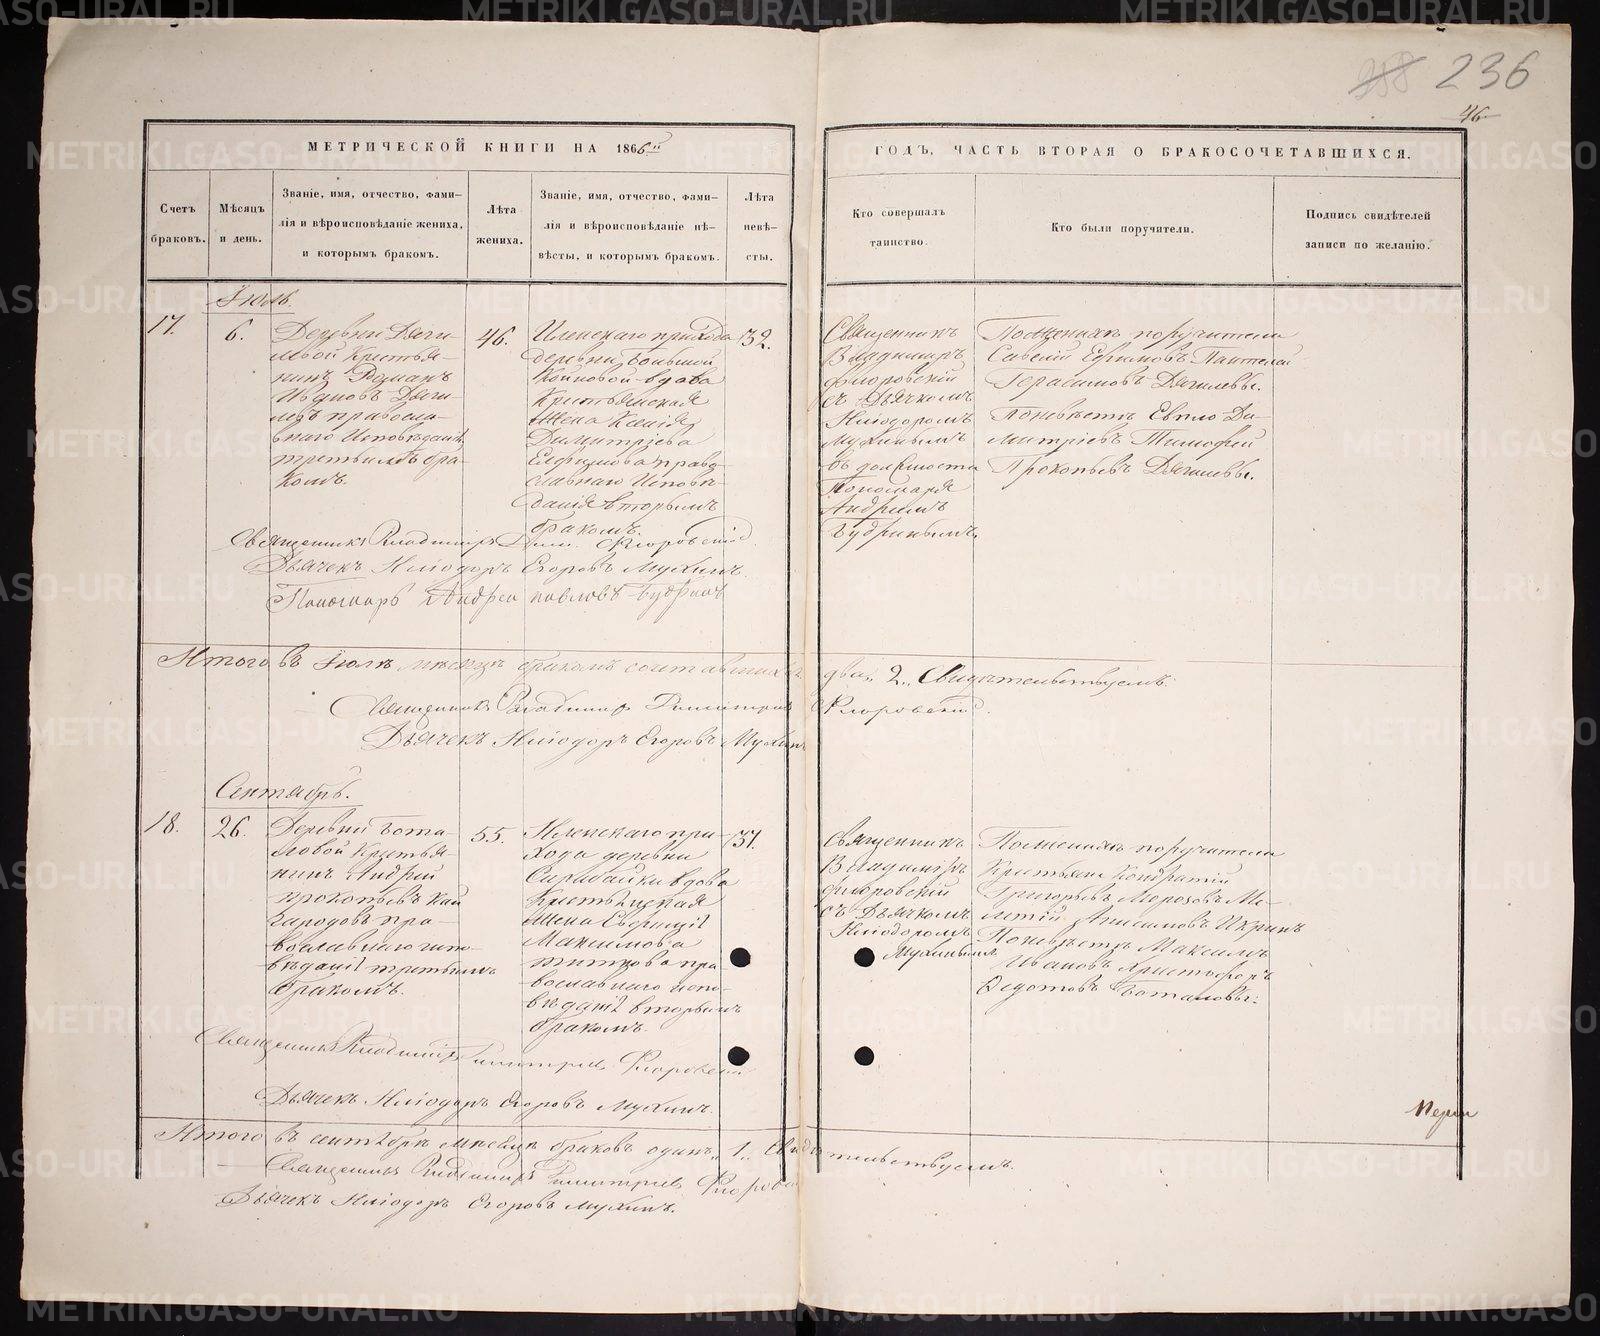 236
46
МЕТРИЧЕСКОЙ КНИГИ НА 1866й
ГОДЪ, ЧАСТЬ ВТОРАЯ О БРАКОСОЧЕТАВШИХСЯ.
Счетъ
браковъ.
Мѣсяцъ
и день.
Званіе, имя, отчество, фами-
лія и вѣроисповѣданіе жениха,
и которымъ бракомъ.
Лѣта
жениха.
Званіе, имя, отчество, фами-
лія и вѣроисповѣданіе не-
вѣсты, и которымъ бракомъ.
Лѣта
невѣ-
сты.
Кто совершалъ
таинство.
Кто были поручители.
Подпись свидѣтелей
записи по желанію.
Іюль.
17.
6.
Деревни Дяги-
левой Крестья-
нинъ Романъ
Ивановъ Дяги-
левъ правосла-
внаго Исповѣданія
третьимъ бра-
комъ.
46.
Иленскаго прихода
деревни Большой
Койновой вдова
Крестьянская
Жена Ксенія
Димитріева
Елфимова право-
славнаго Исповѣ-
данія вторымъ
бракомъ.
32.
Священникъ
Владимиръ
Флоровскій
съ Дьячкомъ
Иліодоромъ
Мухинымъ
въ должности
Пономаря
Андреемъ
Будринымъ
По женихѣ поручители
Савелій Ефимовъ Пантелей
Герасимовъ Дягилевы.
По невѣстѣ Евпло Ди-
митріевъ Тимофей
Прокопьевъ Дягилевы.
Священникъ Владимиръ Дим. Флоровскій
Дьячекъ Иліодоръ Егоровъ Мухинъ.
Пономарь Андрей Павловъ Будринъ
Итого въ Іюлѣ мѣсяцѣ бракомъ сочетавшихся два „2„ Свидѣтельствуемъ.
Священникъ Владимиръ Димитріевъ Флоровскій.
Дьячекъ Иліодоръ Егоровъ Мухинъ
Сентябрь.
18.
26.
Деревни Бота-
ловой Крестья-
нинъ Андрей
Прокопьевъ Кай
городовъ пра-
вославнаго испо-
вѣданія третьимъ
бракомъ.
55.
Иленскаго при-
хода деревни
Сарабайки вдова
Крестьянская
Жена
Максимова
Титкова пра
вославнаго испо-
вѣданія вторымъ
бракомъ.
37.
Священникъ
Владимиръ
Флоровскій
съ Дьячкомъ
Иліодоромъ
Мухинымъ
По женихѣ поручители
Крестьяне Кондратій
Григорьевъ Морозовъ Ме-
летій Анисимовъ
По невѣстѣ Максимъ
Ивановъ Христофоръ
Ведотовъ Боталовы.
Священникъ Владимиръ Димитріевъ Флоровскій
Дьячекъ Иліодоръ Егоровъ Мухинъ.
Итого въ сентябрѣ мѣсяцѣ браковъ одинъ „1„ Свидѣтельствуемъ.
Священникъ Владимиръ Димитріевъ Флоровс
Дьячекъ Иліодоръ Егоровъ Мухинъ.
METRIKI.GASO-URAL.RU